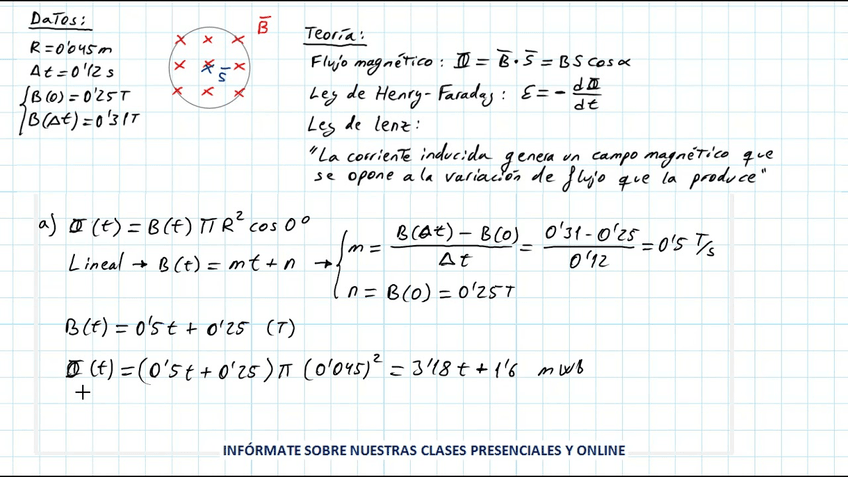 Datos:
R = 0'045 m
Δt = 0'12 s
B(0) = 0'25 T
B(Δt) = 0'31 T
B̄
S̄
Teoría:
Flujo magnético: Φ = B̄ · S̄ = B S cos α
Ley de Henry-Faraday: ε = - dΦ/dt
Ley de lenz:
"La corriente inducida genera un campo magnético que
se opone a la variación de flujo que la produce"
a) Φ(t) = B(t) π R² cos 0º
Lineal → B(t) = mt + n → { m = (B(Δt) - B(0))/Δt = (0'31 - 0'25)/0'12 = 0'5 T/s
n = B(0) = 0'25 T
B(t) = 0'5 t + 0'25 (T)
Φ(t) = (0'5 t + 0'25) π (0'045)² = 3'18 t + 1'6 mWb
INFÓRMATE SOBRE NUESTRAS CLASES PRESENCIALES Y ONLINE